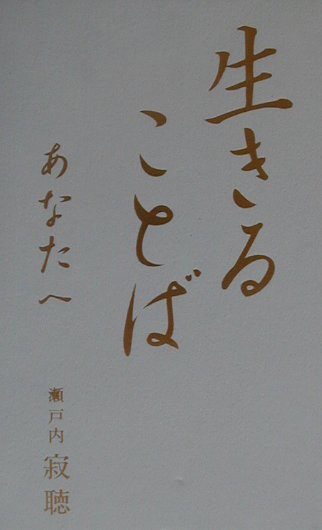 生きる
ことば
あなたへ
瀬戸内寂聴